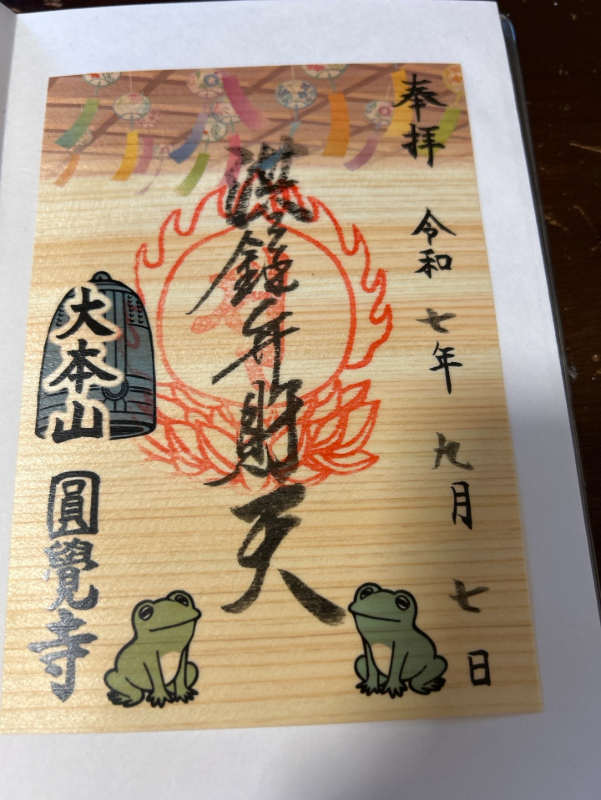 奉拝
令和七年九月七日
洪鐘弁財天
大本山
圓覺寺